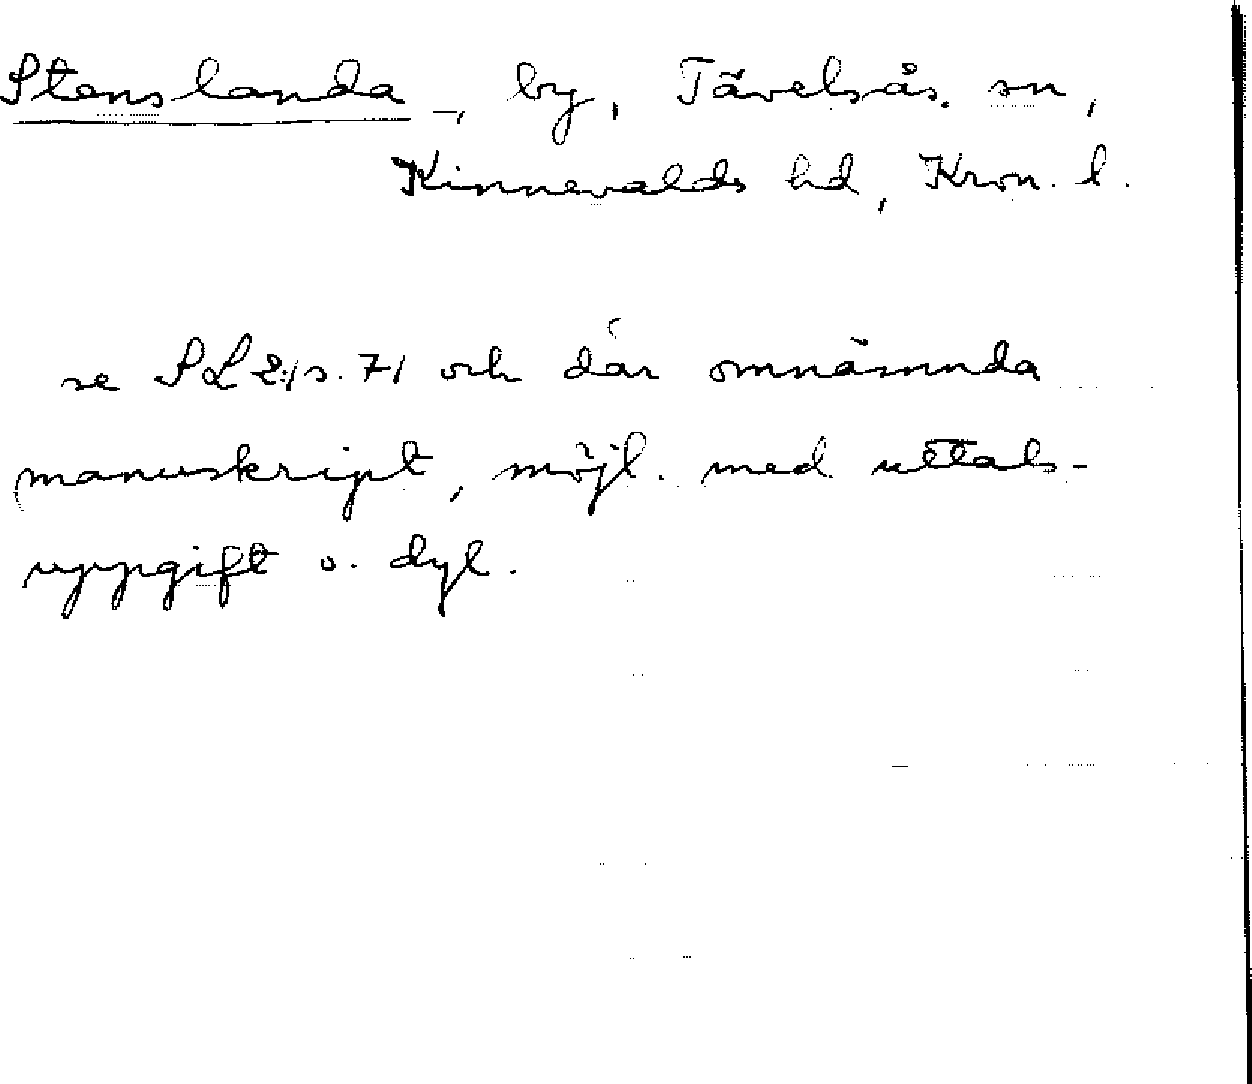 Stenslanda –, by, Tävelsås sn,
Kinnevalds hd, Kron. l.
se SL 2:1 s. 71 och där omnämnda
manuskript, möjl. med uttals-
uppgift o. dyl.